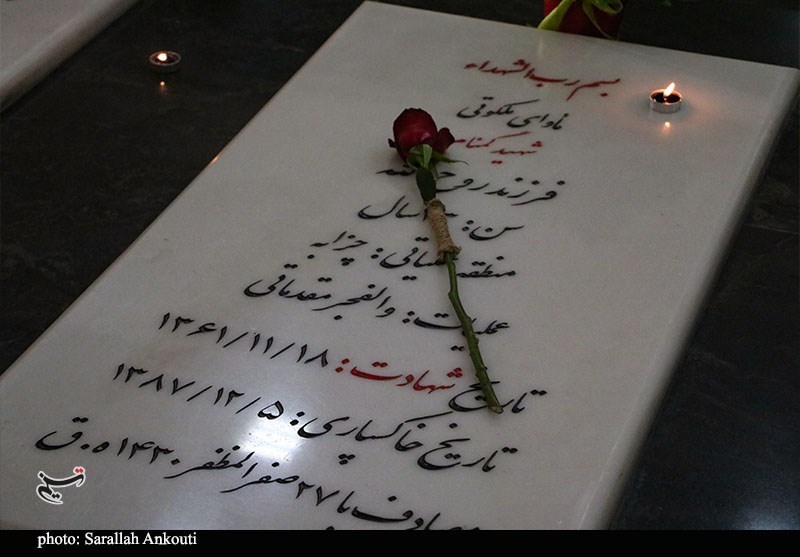 بسم رب الشهداء
ماوای ملکوتی
شهید گمنام
فرزند روح
سن: سال
منطقه عملیاتی: چزابه
عملیات: والفجر مقدماتی
تاریخ شهادت: ۱۳۶۱/۱۱/۱۸
تاریخ خاکسپاری: ۱۳۸۷/۱۲/۵
مصادف با ۲۷ صفر المظفر ۱۴۳۰ ه.ق
تسنیم
photo: Sarallah Ankouti